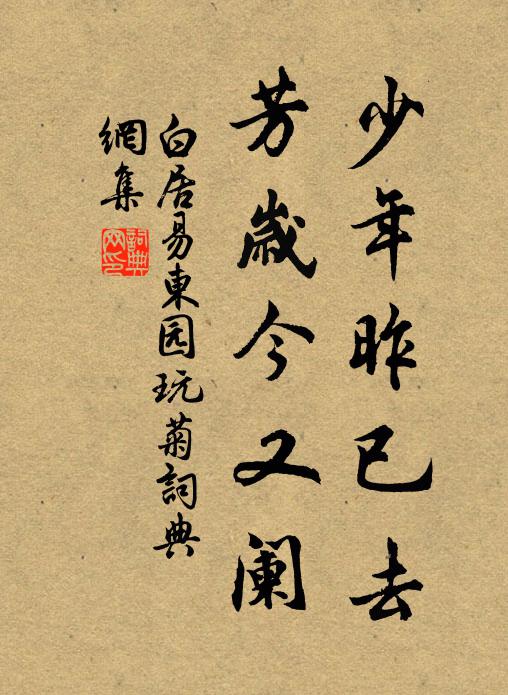 少年昨已去
芳歲今又阑
白居易東园玩菊詞典
網集
詞典
网印